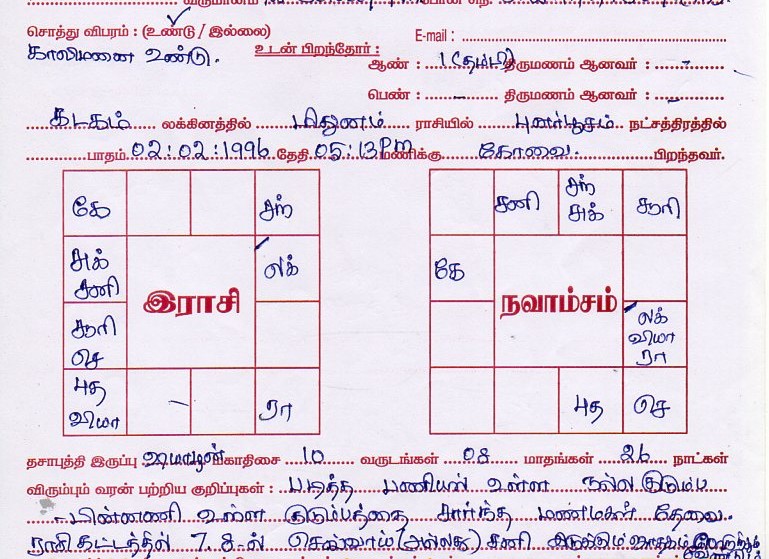 சொத்து விபரம் : (உண்டு / இல்லை)
E-mail :
காலிமனை உண்டு. உடன் பிறந்தோர் :
ஆண் : 1 (தம்பி) திருமணம் ஆனவர் : -
பெண் : - திருமணம் ஆனவர் : -
கடகம் லக்கினத்தில் மிதுனம் ராசியில் புனர்பூசம் நட்சத்திரத்தில்
பாதம் 02:02:1996 தேதி 05:13 PM மணிக்கு கோவை. பிறந்தவர்.
கே சந்
சனி சந் சுக் சூரி
சுக் சனி லக்
கே
இராசி
நவாம்சம்
சூரி செ
லக் வியா ரா
புத வியா - ரா
புத செ
தசாபுத்தி இருப்பு வியாழன் மகாதிசை 10 வருடங்கள் 08 மாதங்கள் 26 நாட்கள்
விரும்பும் வரன் பற்றிய குறிப்புகள் : படித்த பணியில் உள்ள நல்ல குடும்ப
பின்னணி உள்ள குடும்பத்தை சார்ந்த மணமகள் தேவை.
ராசி கட்டத்தில் 7, 8-ல் செவ்வாய் (அல்லது) சனி இருக்கும் ஜாதகம்